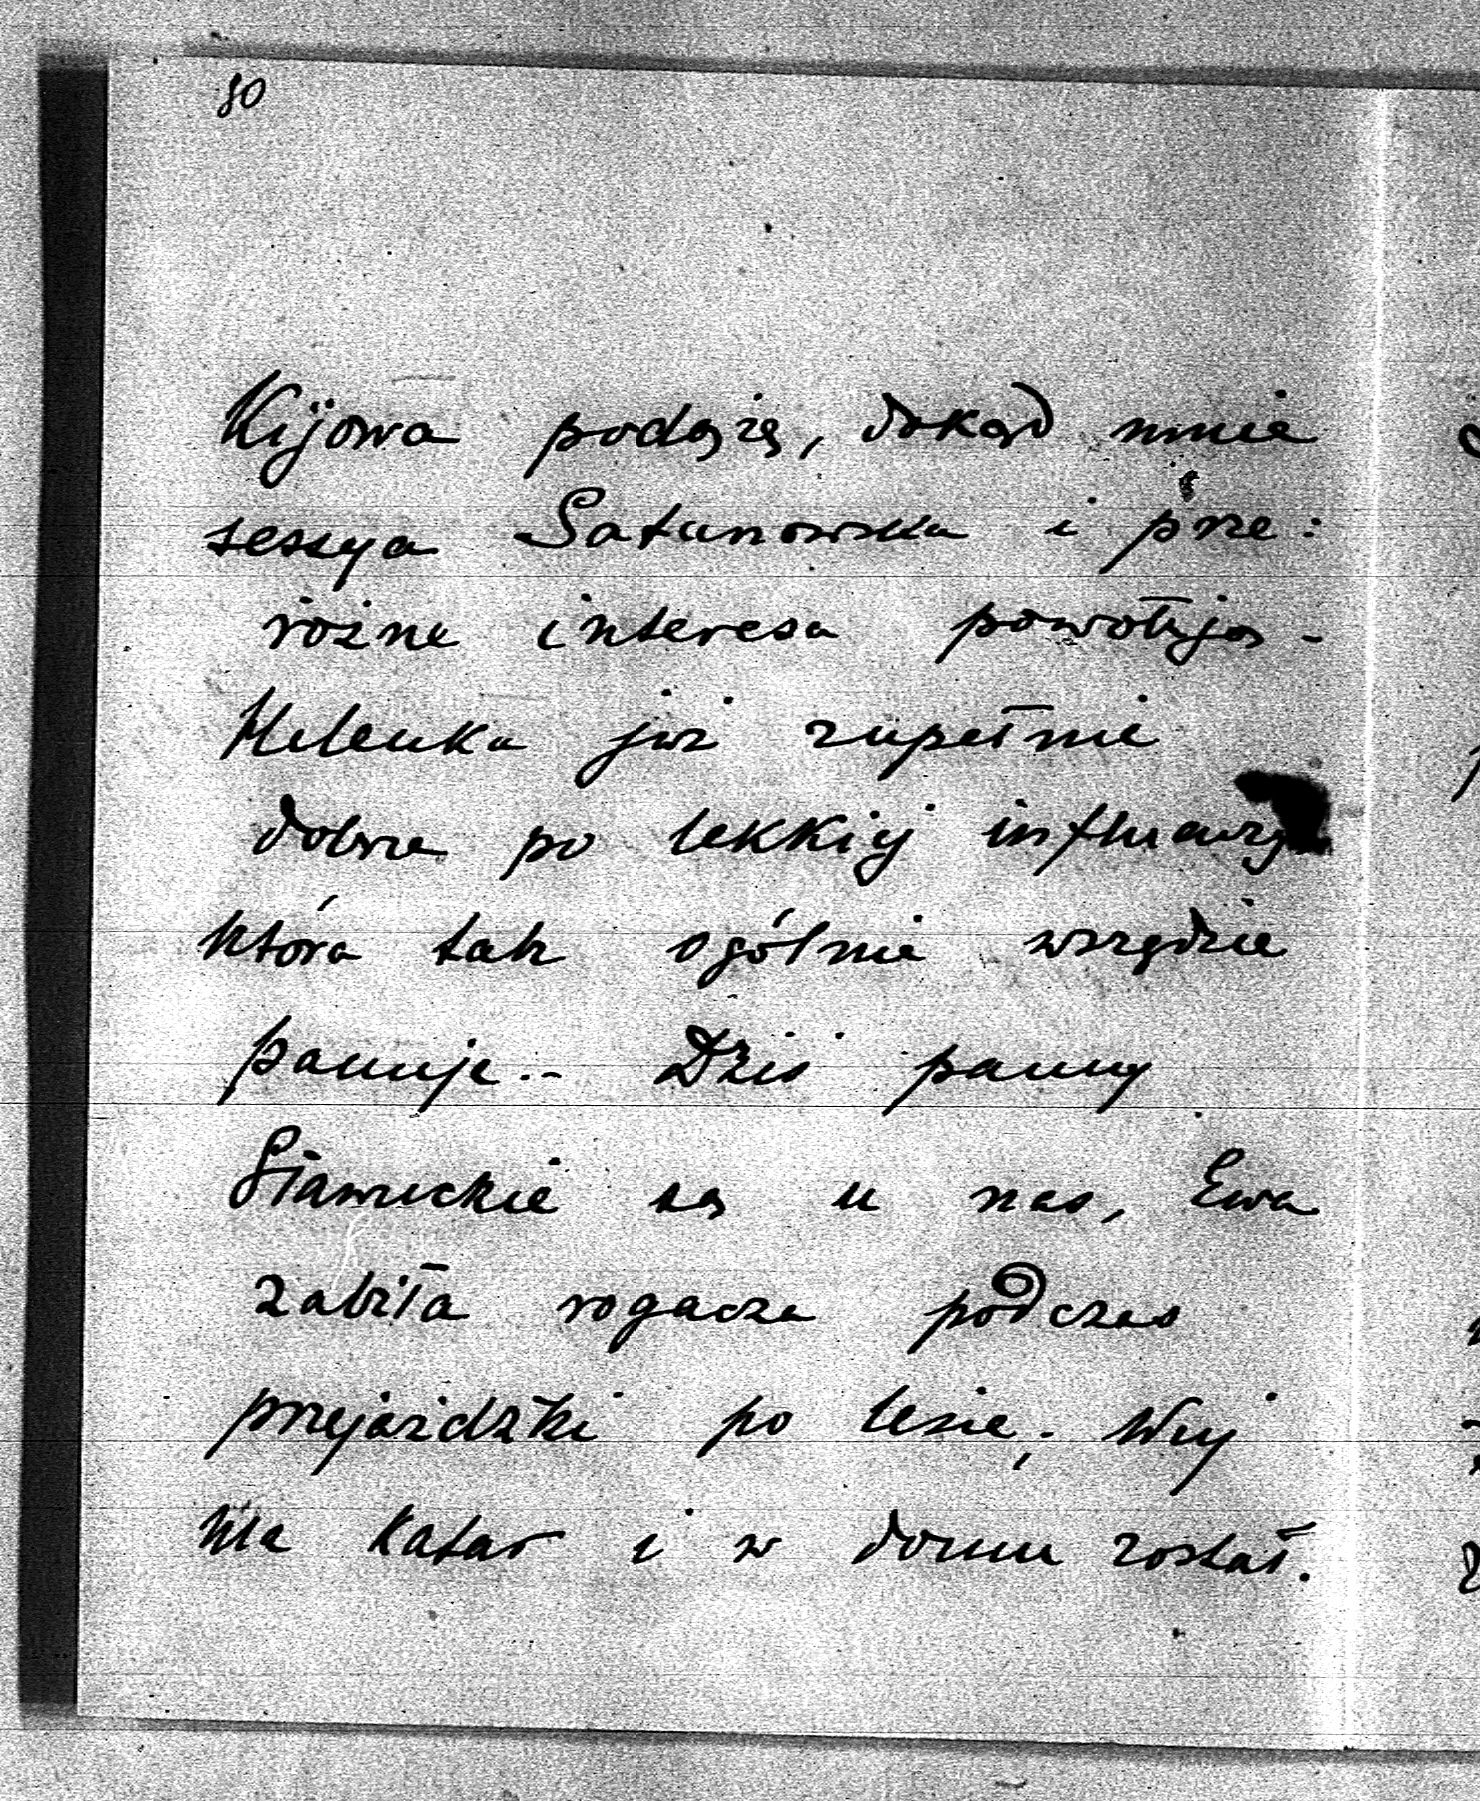 80
Kijowa podążę, dokąd mnie
sessya Satanowska i prze:
różne interesa powołują -
Helenka już zupełnie
dobrze po lekkiej influenzy
która tak ogólnie wszędzie
panuje.- Dziś panny
są u nas, Ewa
zabiła rogacza podczas
przejażdżki po lesie; Wuj
ma katar i w domu został.